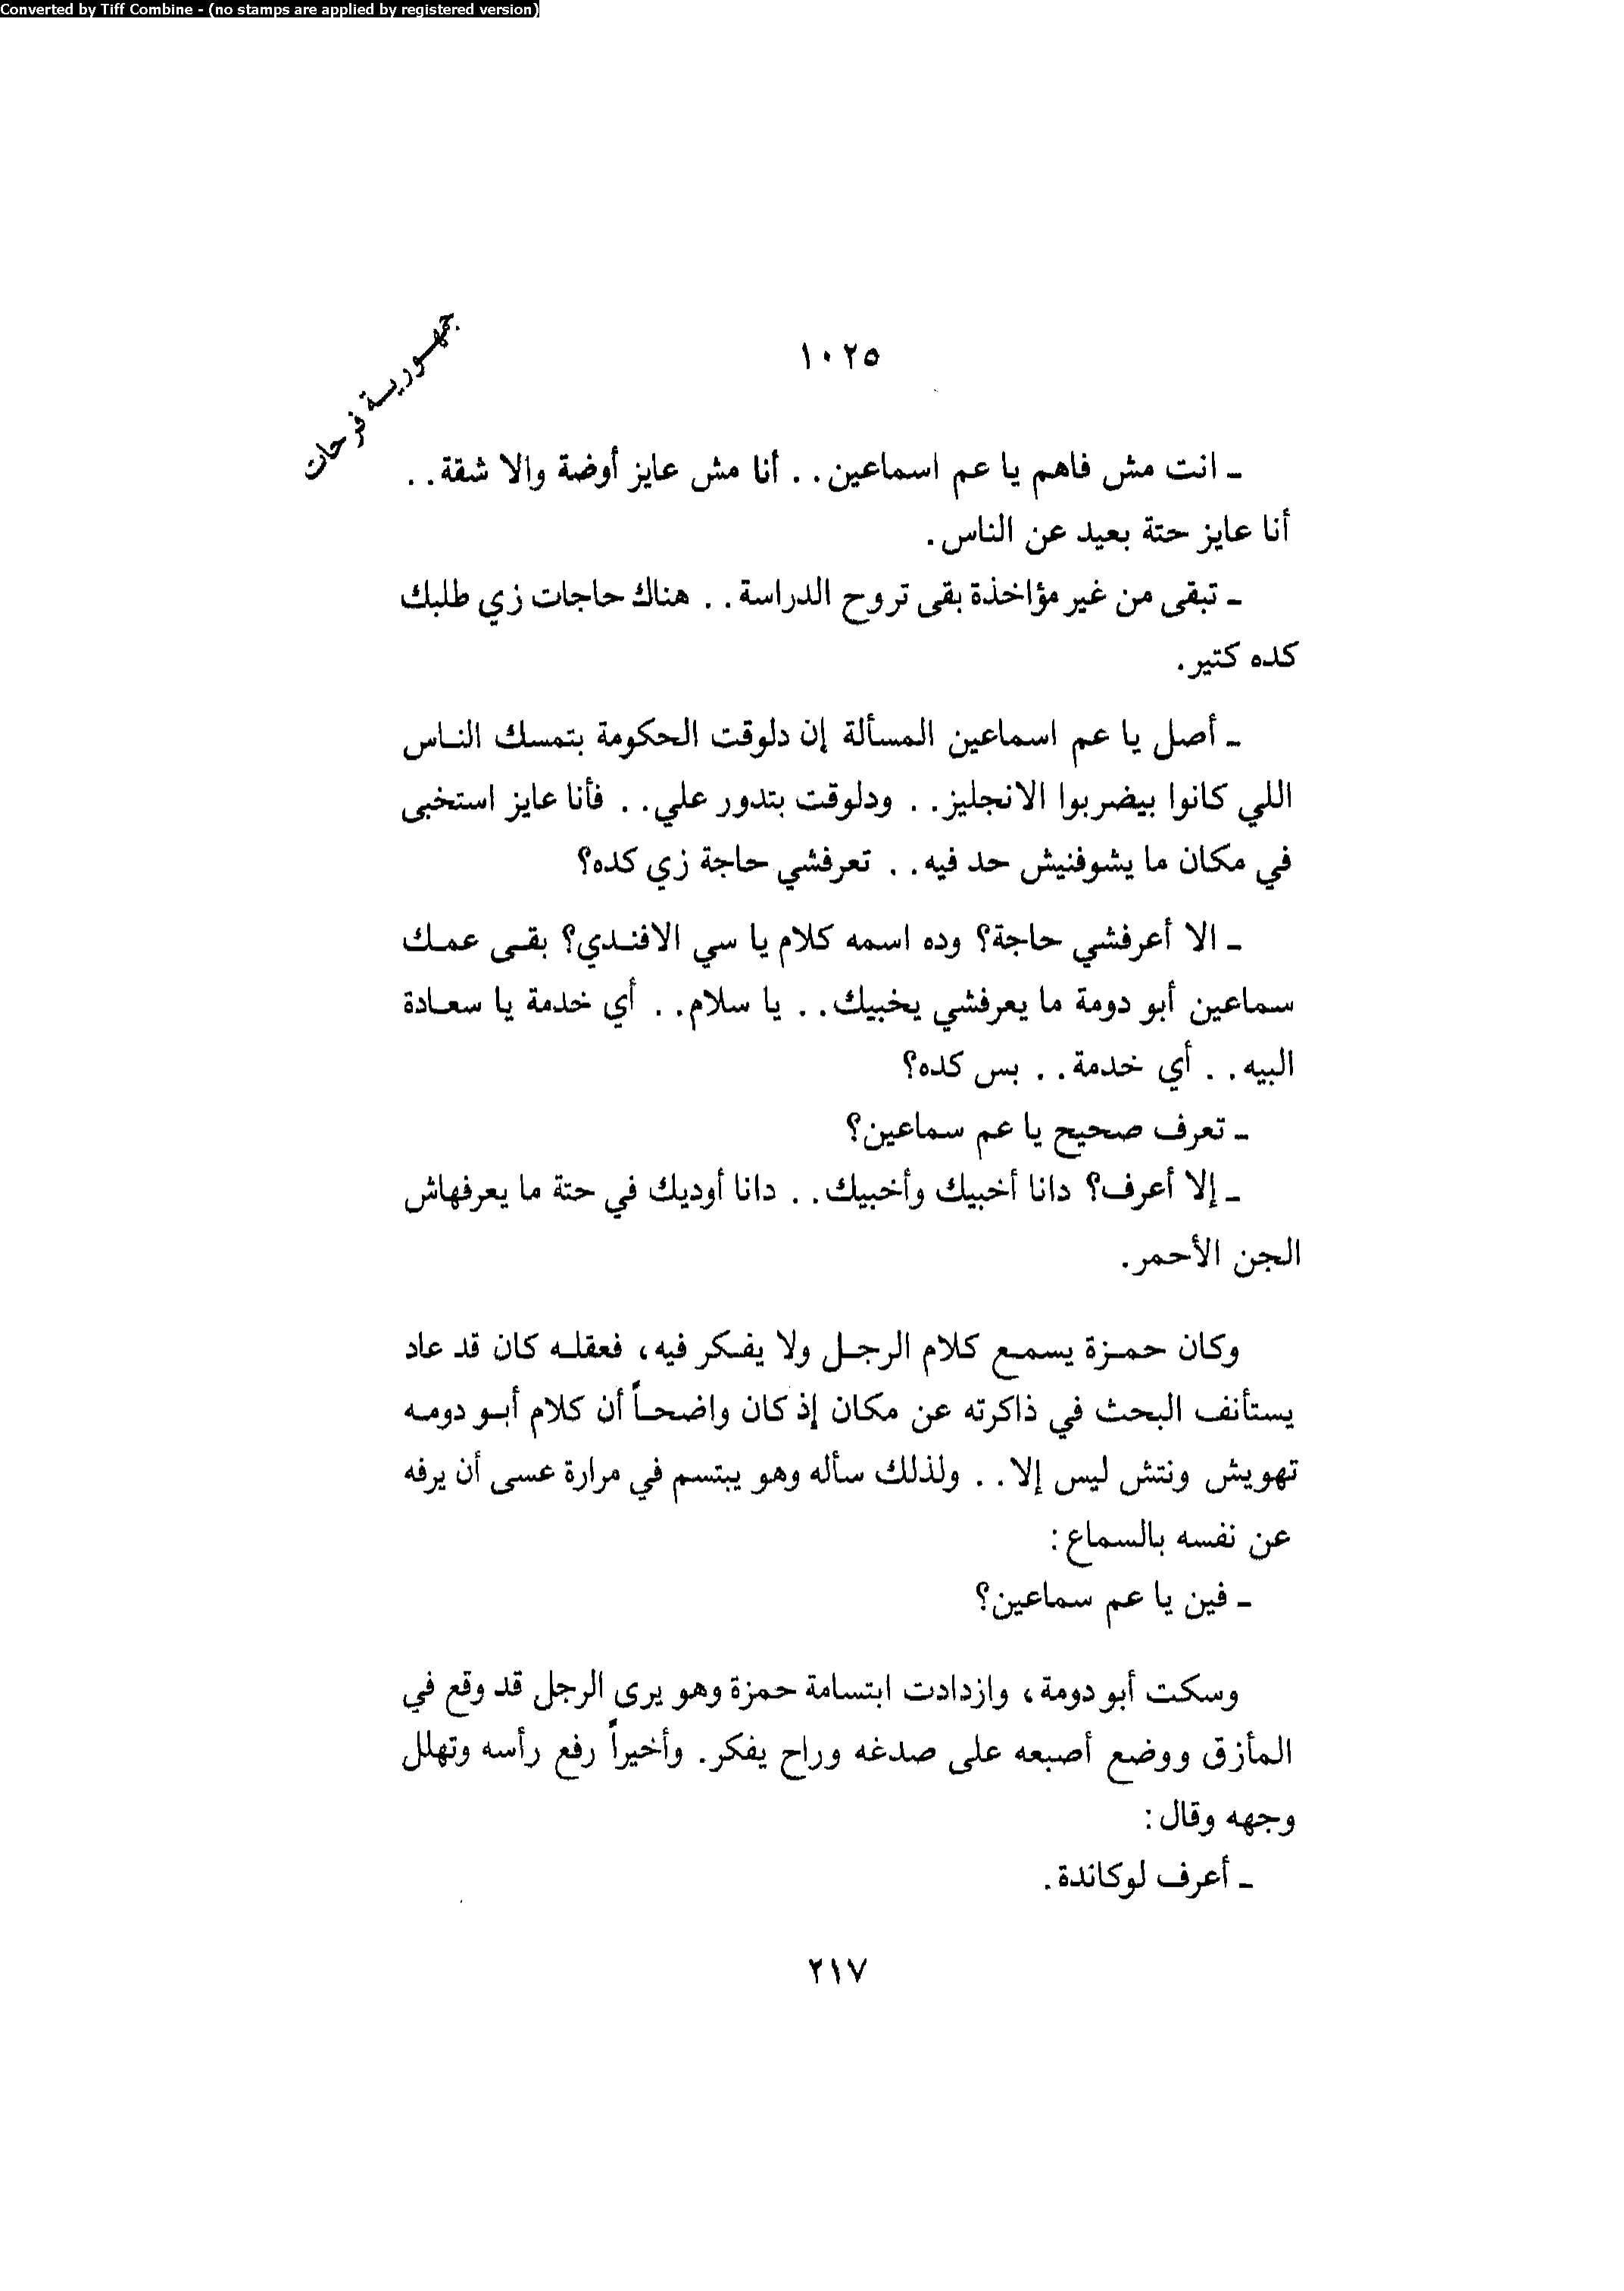 Converted by Tiff Combine - (no stamps are applied by registered version)
جمهورية فرحات
١٠٢٥
ـ انت مش فاهم يا عم اسماعين.. أنا مش عايز أوضة والا شقة..
أنا عايز حتة بعيد عن الناس.
ـ تبقى من غير مؤاخذة بقى تروح الدراسة.. هناك حاجات زي طلبك
كده كتير.
ـ أصل يا عم اسماعين المسألة إن دلوقت الحكومة بتمسك الناس
اللي كانوا بيضربوا الانجليز.. ودلوقت بتدور علي.. فأنا عايز استخبى
في مكان ما يشوفنيش حد فيه.. تعرفشي حاجة زي كده؟
ـ الا أعرفشي حاجة؟ وده اسمه كلام يا سي الافندي؟ بقى عمك
سماعين أبو دومة ما يعرفشي يخبيك.. يا سلام.. أي خدمة يا سعادة
البيه.. أي خدمة.. بس كده؟
ـ تعرف صحيح يا عم سماعين؟
ـ إلا أعرف؟ دانا أخبيك وأخبيك.. دانا أوديك في حتة ما يعرفهاش
الجن الأحمر.
وكان حمزة يسمع كلام الرجل ولا يفكر فيه، فعقله كان قد عاد
يستأنف البحث في ذاكرته عن مكان إذ كان واضحاً أن كلام أبو دومه
تهويش ونتش ليس إلا.. ولذلك سأله وهو يبتسم في مرارة عسى أن يرفه
عن نفسه بالسماع:
ـ فين يا عم سماعين؟
وسكت أبو دومة، وازدادت ابتسامة حمزة وهو يرى الرجل قد وقع في
المأزق ووضع أصبعه على صدغه وراح يفكر. وأخيراً رفع رأسه وتهلل
وجهه وقال:
ـ أعرف لوكاندة.
٢١٧